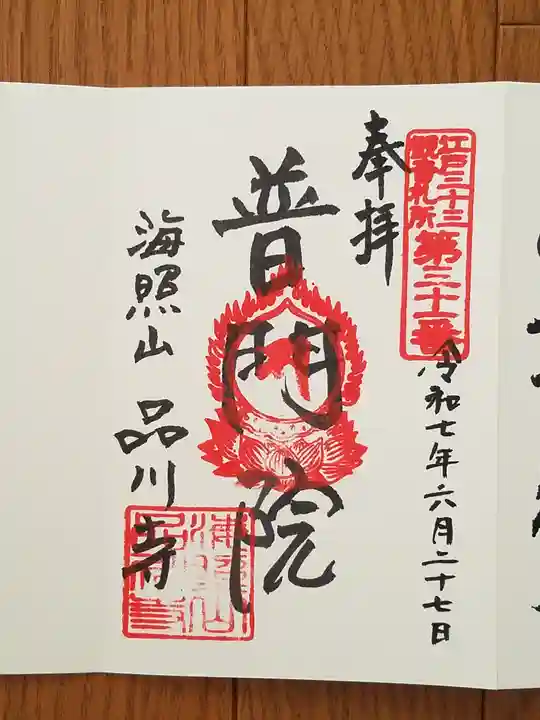 江戸三十三
観音札所
第三十一番
奉拝
令和七年六月二十七日
普門院
海照山 品川寺